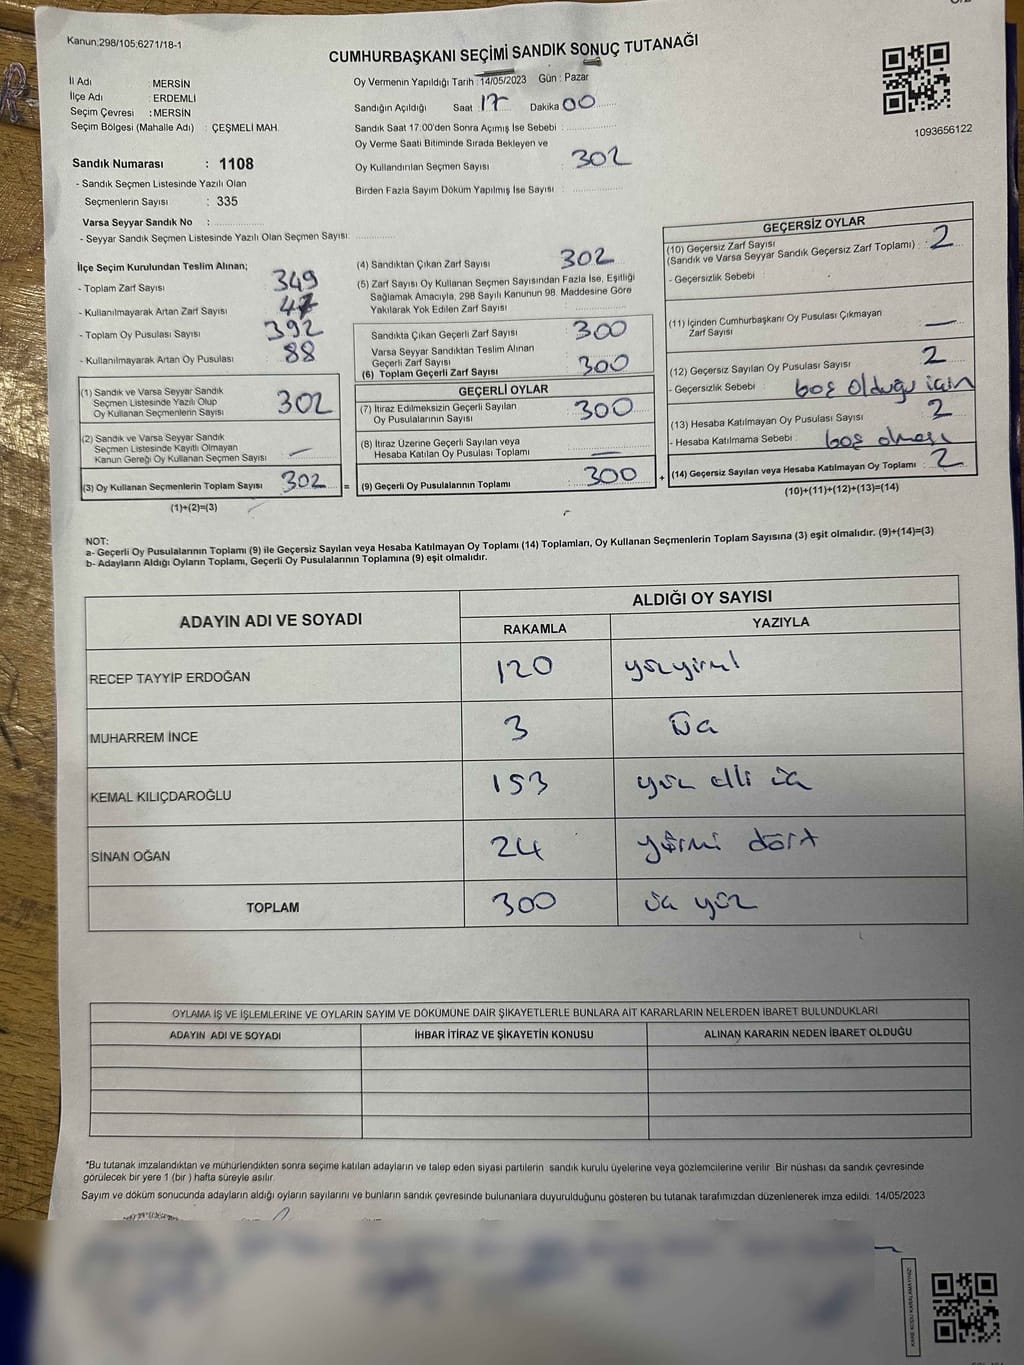 Kanun:298/105;6271/18-1
CUMHURBAŞKANI SEÇİMİ SANDIK SONUÇ TUTANAĞI
İl Adı : MERSİN
İlçe Adı : ERDEMLİ
Seçim Çevresi : MERSİN
Seçim Bölgesi (Mahalle Adı) : ÇEŞMELİ MAH.
Oy Vermenin Yapıldığı Tarih : 14/05/2023 Gün : Pazar
Sandığın Açıldığı Saat 17 Dakika 00
Sandık Saat 17:00'den Sonra Açımış İse Sebebi :
Oy Verme Saati Bitiminde Sırada Bekleyen ve
Oy Kullandırılan Seçmen Sayısı : 302
Birden Fazla Sayım Döküm Yapılmış İse Sayısı :
1093656122
Sandık Numarası : 1108
- Sandık Seçmen Listesinde Yazılı Olan
Seçmenlerin Sayısı : 335
Varsa Seyyar Sandık No :
- Seyyar Sandık Seçmen Listesinde Yazılı Olan Seçmen Sayısı:
İlçe Seçim Kurulundan Teslim Alınan;
- Toplam Zarf Sayısı 349
- Kullanılmayarak Artan Zarf Sayısı 47
- Toplam Oy Pusulası Sayısı 392
- Kullanılmayarak Artan Oy Pusulası 88
(1) Sandık ve Varsa Seyyar Sandık
Seçmen Listesinde Yazılı Olup
Oy Kullanan Seçmenlerin Sayısı 302
(2) Sandık ve Varsa Seyyar Sandık
Seçmen Listesinde Kayıtlı Olmayan
Kanun Gereği Oy Kullanan Seçmen Sayısı —
(3) Oy Kullanan Seçmenlerin Toplam Sayısı 302 =
(1)+(2)=(3)
(4) Sandıktan Çıkan Zarf Sayısı 302
(5) Zarf Sayısı Oy Kullanan Seçmen Sayısından Fazla İse, Eşitliği
Sağlamak Amacıyla, 298 Sayılı Kanunun 98. Maddesine Göre
Yakılarak Yok Edilen Zarf Sayısı :
Sandıkta Çıkan Geçerli Zarf Sayısı 300
Varsa Seyyar Sandıktan Teslim Alınan
Geçerli Zarf Sayısı
(6) Toplam Geçerli Zarf Sayısı 300
GEÇERLİ OYLAR
(7) İtiraz Edilmeksizin Geçerli Sayılan
Oy Pusulalarının Sayısı 300
(8) İtiraz Üzerine Geçerli Sayılan veya
Hesaba Katılan Oy Pusulası Toplamı —
(9) Geçerli Oy Pusulalarının Toplamı 300 +
GEÇERSİZ OYLAR
(10) Geçersiz Zarf Sayısı
(Sandık ve Varsa Seyyar Sandık Geçersiz Zarf Toplamı) : 2
- Geçersizlik Sebebi :
(11) İçinden Cumhurbaşkanı Oy Pusulası Çıkmayan
Zarf Sayısı —
(12) Geçersiz Sayılan Oy Pusulası Sayısı 2
- Geçersizlik Sebebi : boş olduğu için
(13) Hesaba Katılmayan Oy Pusulası Sayısı 2
- Hesaba Katılmama Sebebi : boş olması
(14) Geçersiz Sayılan veya Hesaba Katılmayan Oy Toplamı : 2
(10)+(11)+(12)+(13)=(14)
NOT:
a- Geçerli Oy Pusulalarının Toplamı (9) ile Geçersiz Sayılan veya Hesaba Katılmayan Oy Toplamı (14) Toplamları, Oy Kullanan Seçmenlerin Toplam Sayısına (3) eşit olmalıdır. (9)+(14)=(3)
b- Adayların Aldığı Oyların Toplamı, Geçerli Oy Pusulalarının Toplamına (9) eşit olmalıdır.
ADAYIN ADI VE SOYADI ALDIĞI OY SAYISI
RAKAMLA YAZIYLA
RECEP TAYYİP ERDOĞAN 120 yüzyirmi
MUHARREM İNCE 3 Üç
KEMAL KILIÇDAROĞLU 153 yüz elli üç
SİNAN OĞAN 24 yirmi dört
TOPLAM 300 üç yüz
OYLAMA İŞ VE İŞLEMLERİNE VE OYLARIN SAYIM VE DÖKÜMÜNE DAİR ŞİKAYETLERLE BUNLARA AİT KARARLARIN NELERDEN İBARET BULUNDUKLARI
ADAYIN ADI VE SOYADI İHBAR İTİRAZ VE ŞİKAYETİN KONUSU ALINAN KARARIN NEDEN İBARET OLDUĞU
*Bu tutanak imzalandıktan ve mühürlendikten sonra seçime katılan adayların ve talep eden siyasi partilerin sandık kurulu üyelerine veya gözlemcilerine verilir. Bir nüshası da sandık çevresinde
görülecek bir yere 1 (bir ) hafta süreyle asılır.
Sayım ve döküm sonucunda adayların aldığı oyların sayılarını ve bunların sandık çevresinde bulunanlara duyurulduğunu gösteren bu tutanak tarafımızdan düzenlenerek imza edildi. 14/05/2023
KARE KODU KARALAMAYINIZ!